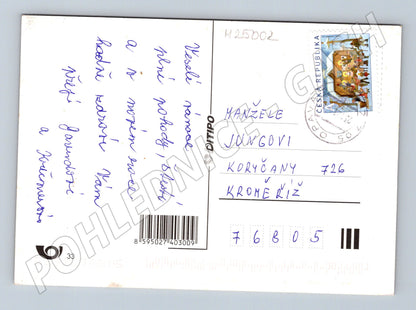 H25002
Veselé vánoce
plné pohody, štěstí
a v novém roce
hodně zdraví Vám
přejí
a
DITIPO
8 595027 403009
33
ČESKÁ REPUBLIKA
OPAVA
MANŽELÉ
JUNGOVI
KORYČANY 726
KROMĚŘÍŽ
76805
POHLEDNICE